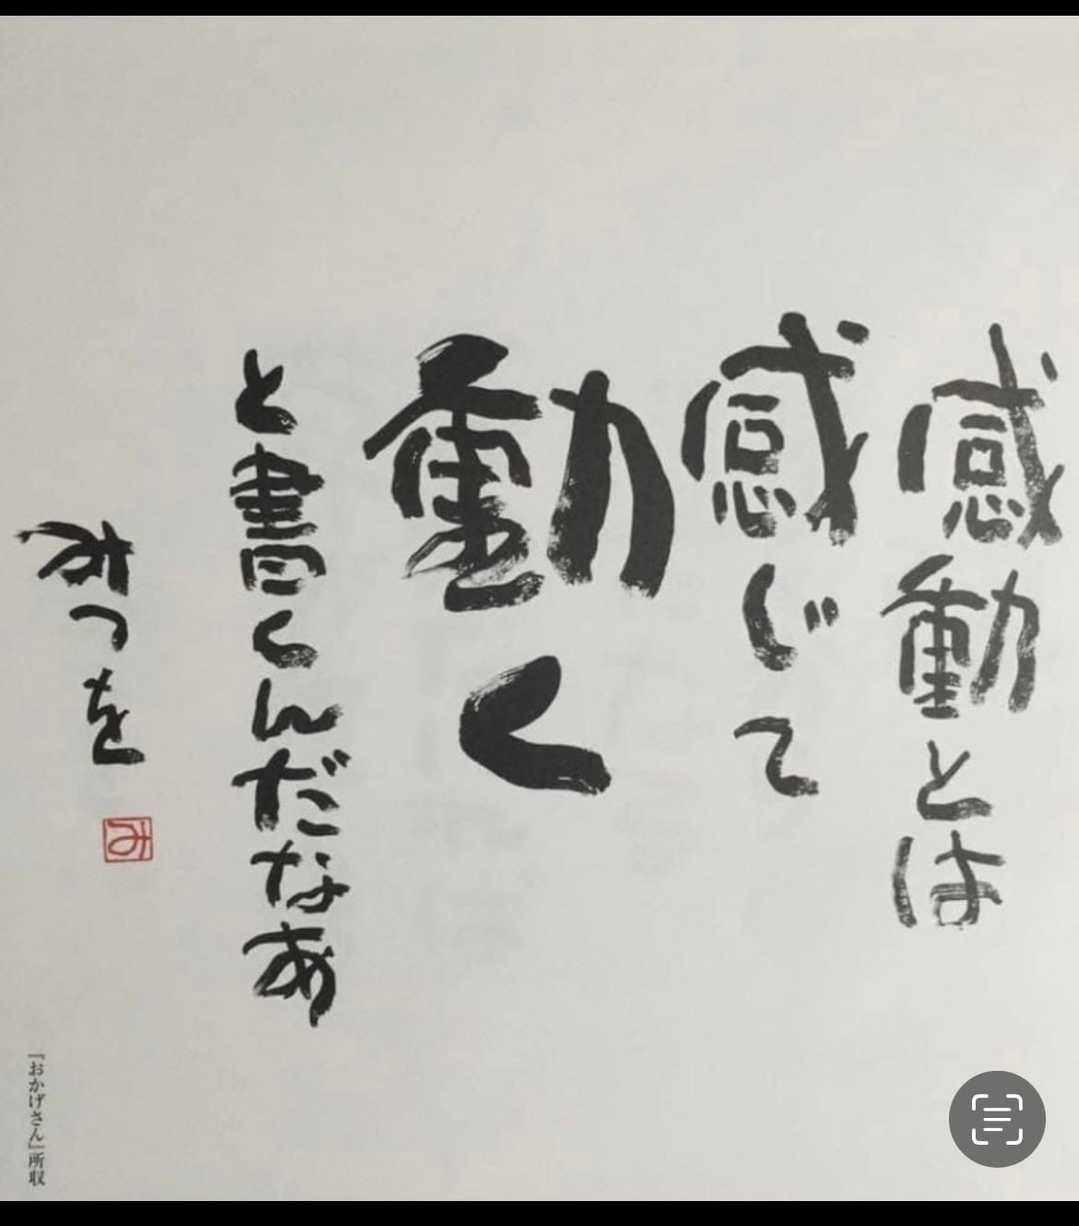 感動とは
感じて
動く
と書くんだなあ
みつを
み
『おかげさん』所収